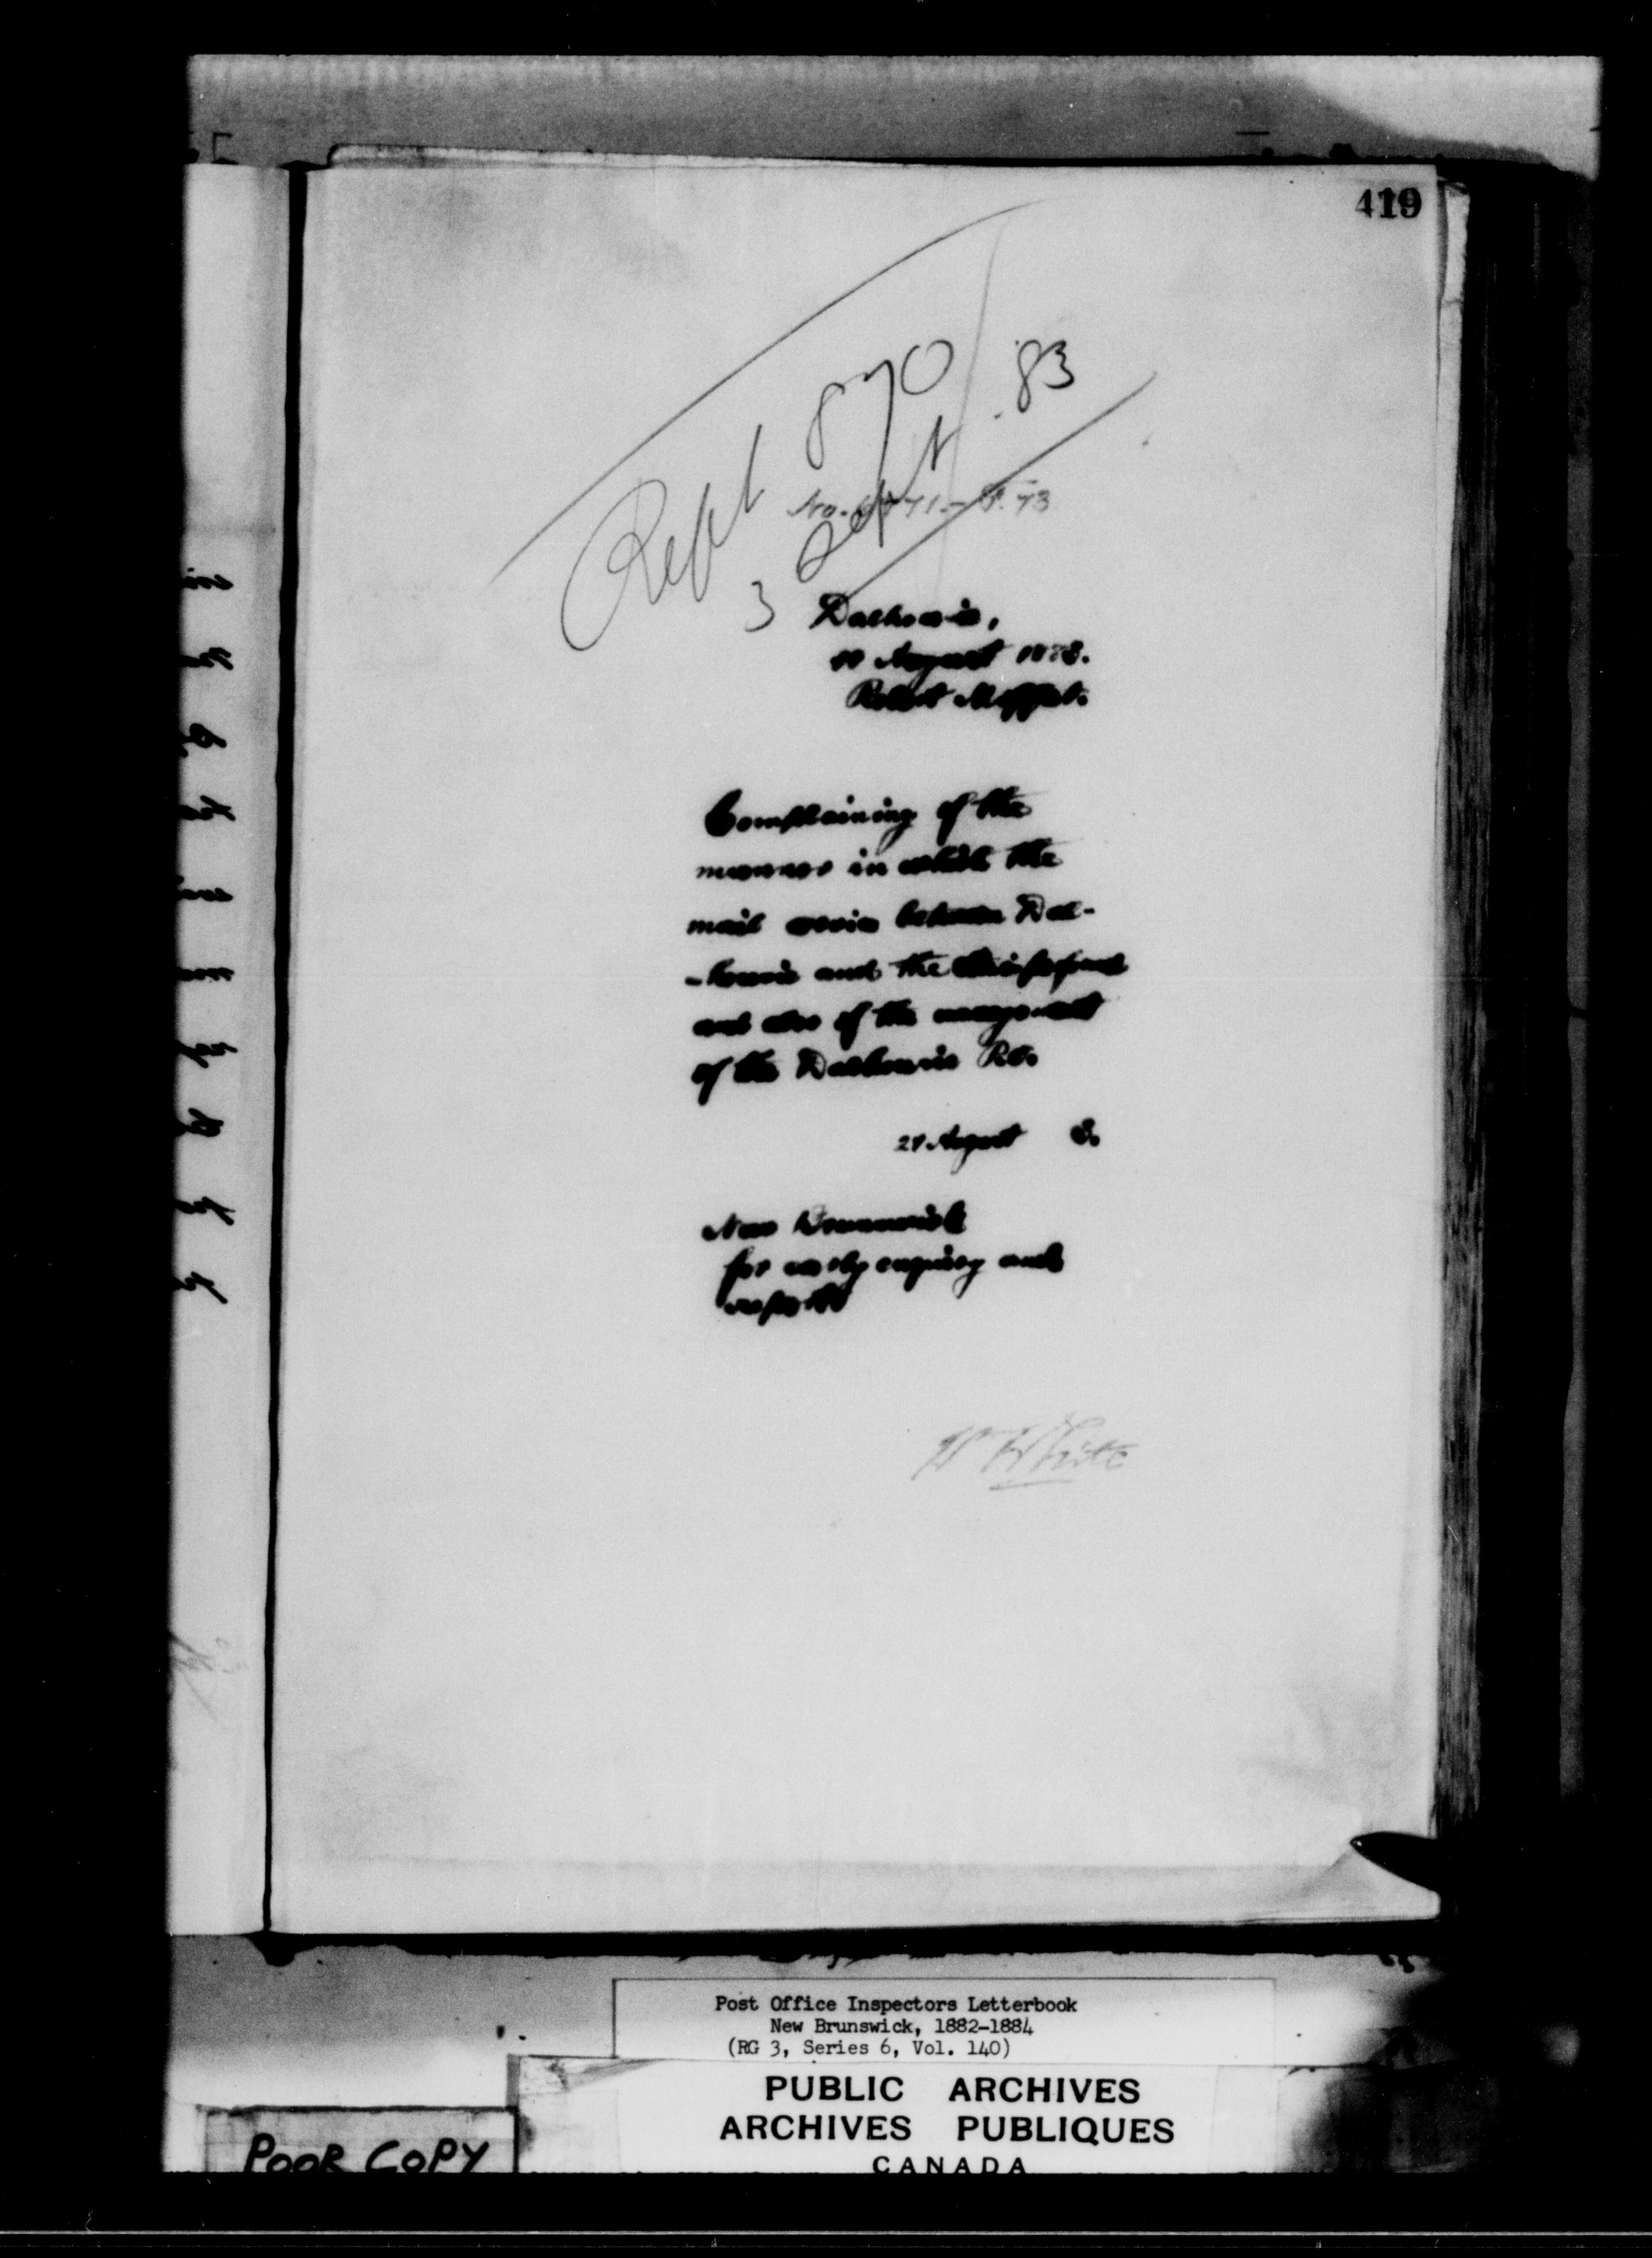 419
Rept 870
3 Sept. 83
Dalhousie,
August 1883.
Robert Moffat.
Complaining of the
manner in which the
mail service between Dal-
-housie and the
and also of the management
of the Dalhousie P.O.
August 3.
New Brunswick
for early enquiry and
report
White
Post Office Inspectors Letterbook
New Brunswick, 1882-1884
(RG 3, Series 6, Vol. 140)
PUBLIC ARCHIVES
ARCHIVES PUBLIQUES
CANADA
POOR COPY